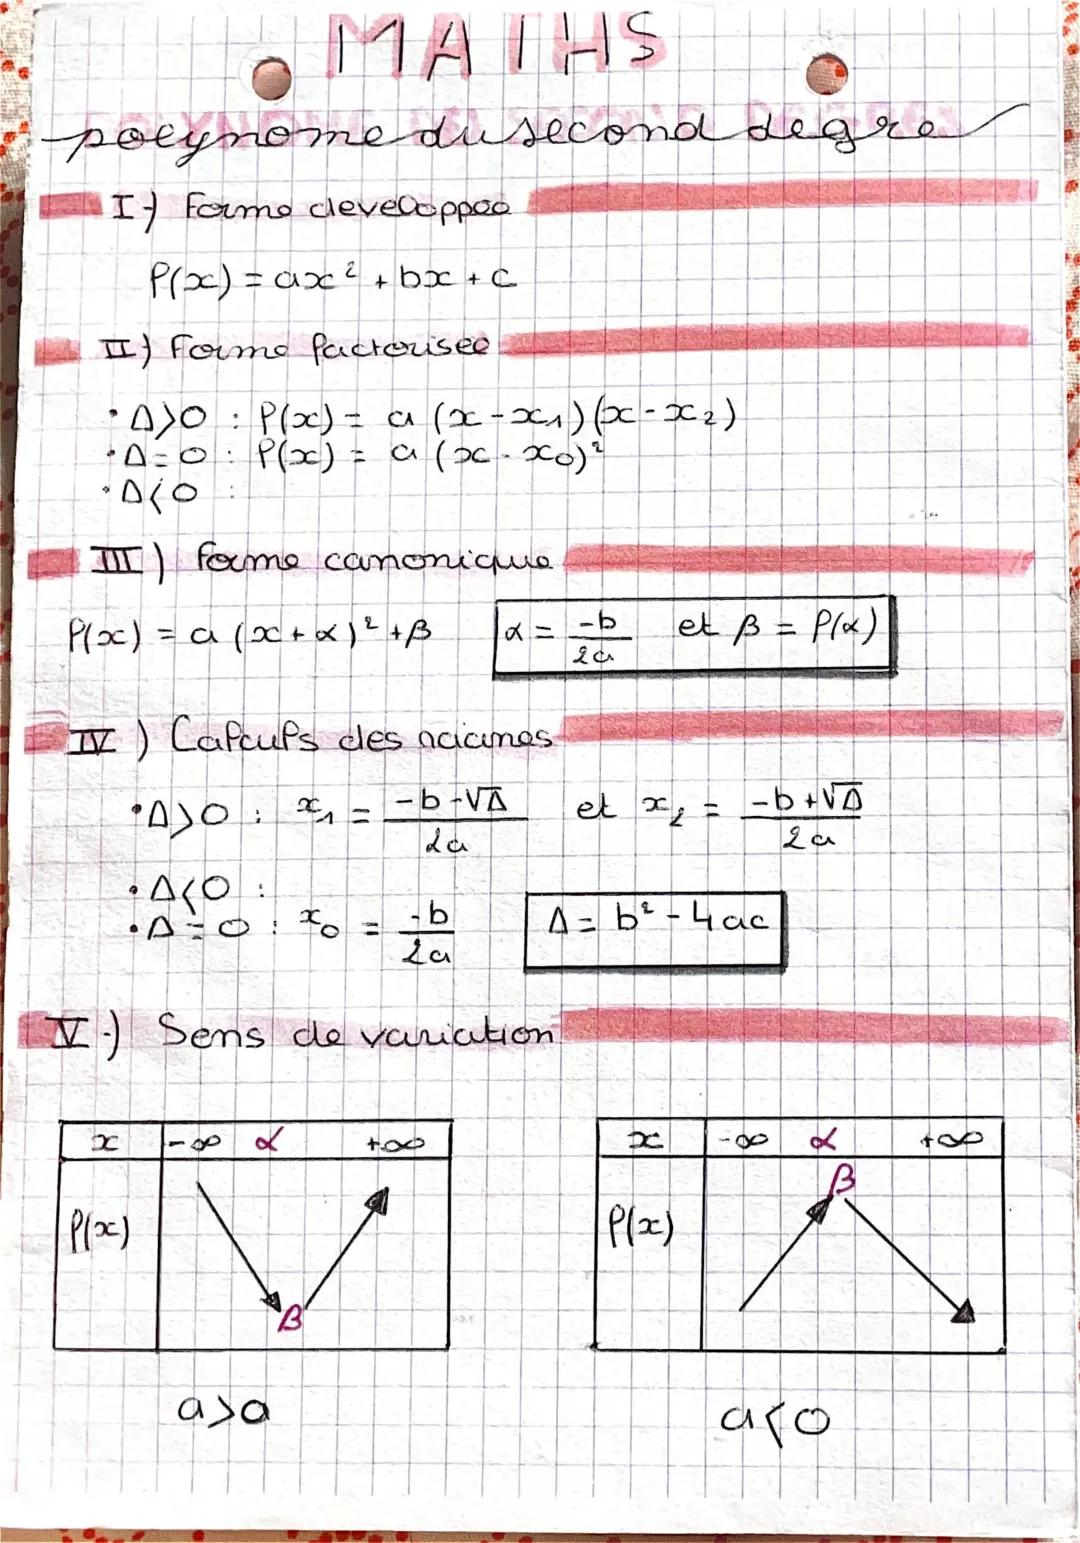 MATHS
polynome du second degre
I-) Forme developpee
P(x) = ax² + bx + c
II) Forme factorisee
• Δ>0 : P(x) = a (x - x₁)(x - x₂)
• Δ=0 : P(x) = a (x - x₀)²
• Δ<0 :
III) forme canonique
P(x) = a (x + α)² + β α = -b/2a et β = P(α)
IV) Calculs des racines
• Δ>0 : x₁ = -b-√Δ/2a et x₂ = -b+√Δ/2a
• Δ<0 :
• Δ=0 : x₀ = -b/2a Δ = b² - 4ac
V-) Sens de variation
x -∞ α +∞
P(x)
β
a>a
x -∞ α +∞
β
P(x)
a<0